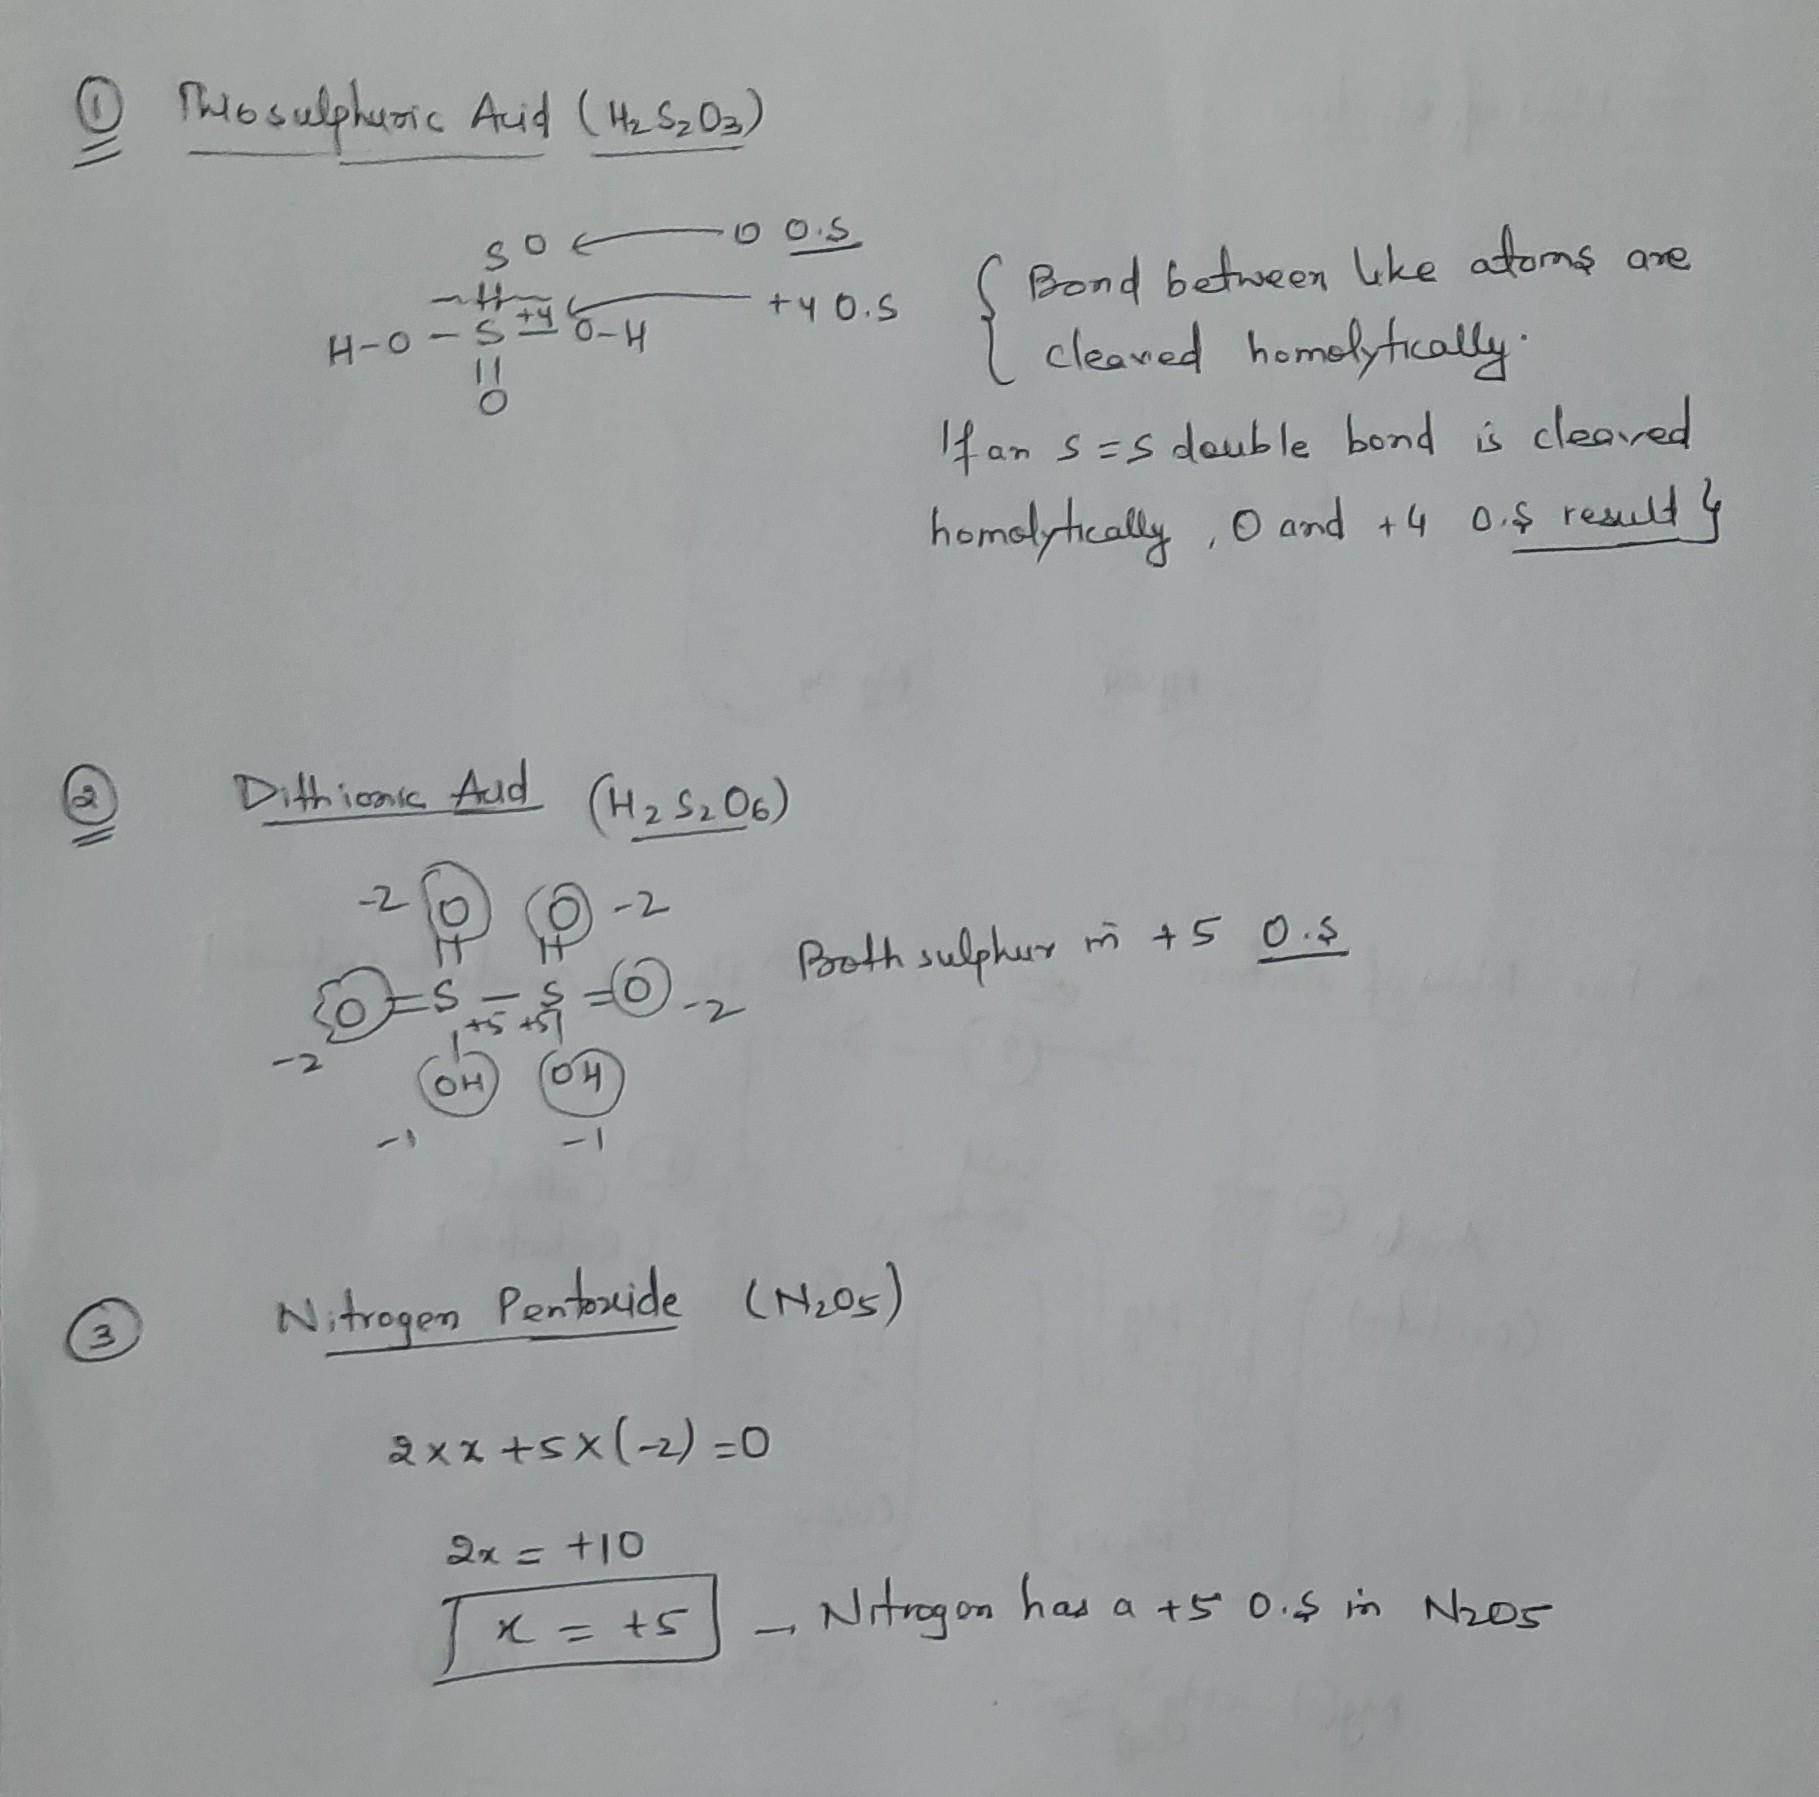 ① Thiosulphuric Acid (H2S2O3)
S 0 ← 0 O.S
+4 O.S
H-O-S +4 O-H
O
{ Bond between like atoms are
cleaved homolytically.
If an S=S double bond is cleaved
homolytically, 0 and +4 O.S result }
② Dithionic Acid (H2S2O6)
-2 O O -2
O=S-S=O -2
+5 +5
-2
OH OH
-1 -1
Both sulphur in +5 O.S
③ Nitrogen Pentoxide (N2O5)
2×x+5×(-2)=0
2x = +10
x = +5 → Nitrogen has a +5 O.S in N2O5